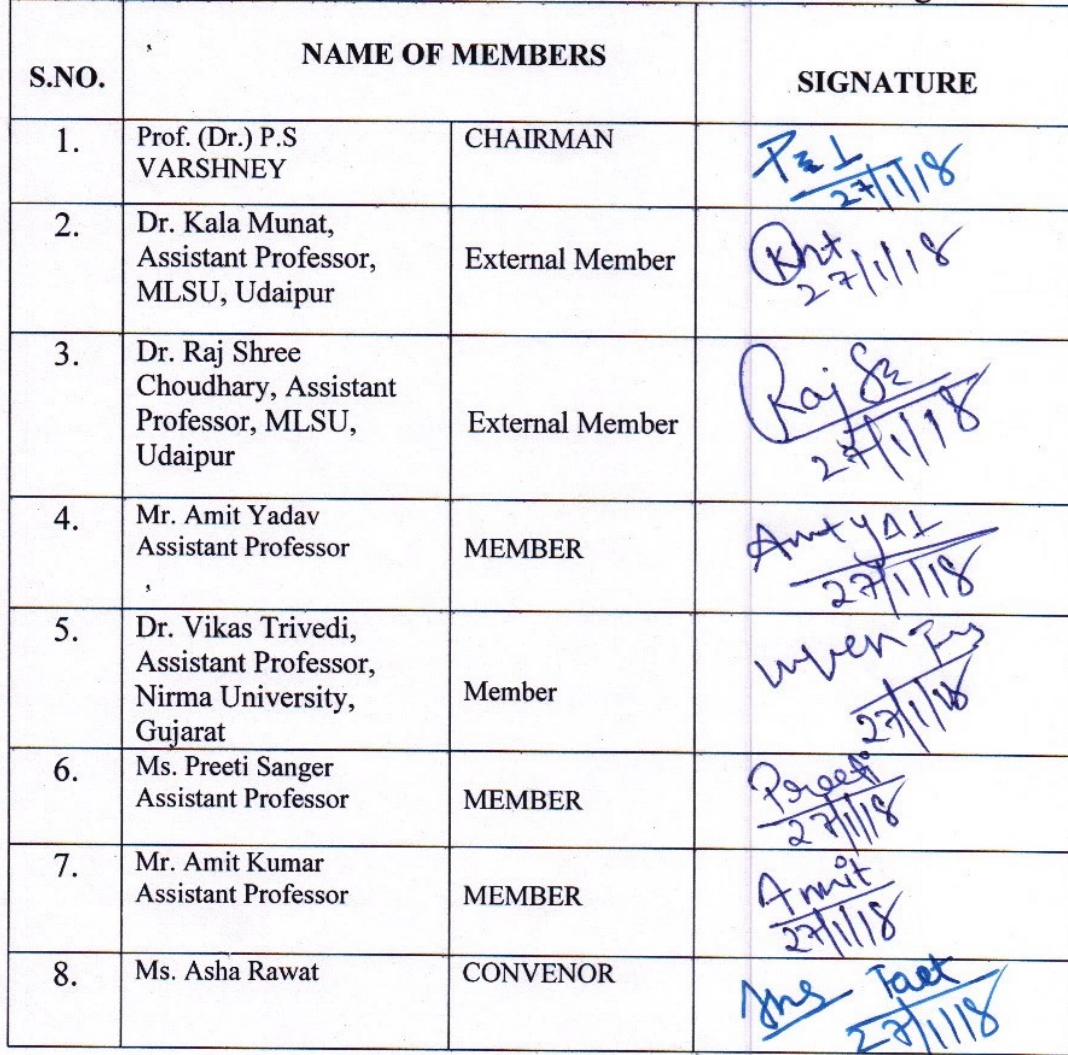 S.NO.
NAME OF MEMBERS
SIGNATURE
1.
Prof. (Dr.) P.S
VARSHNEY
CHAIRMAN
27/1/18
2.
Dr. Kala Munat,
Assistant Professor,
MLSU, Udaipur
External Member
27/1/18
3.
Dr. Raj Shree
Choudhary, Assistant
Professor, MLSU,
Udaipur
External Member
Raj
27/1/18
4.
Mr. Amit Yadav
Assistant Professor
MEMBER
27/1/18
5.
Dr. Vikas Trivedi,
Assistant Professor,
Nirma University,
Gujarat
Member
27/1/18
6.
Ms. Preeti Sanger
Assistant Professor
MEMBER
Preeti
27/1/18
7.
Mr. Amit Kumar
Assistant Professor
MEMBER
27/1/18
8.
Ms. Asha Rawat
CONVENOR
27/1/18